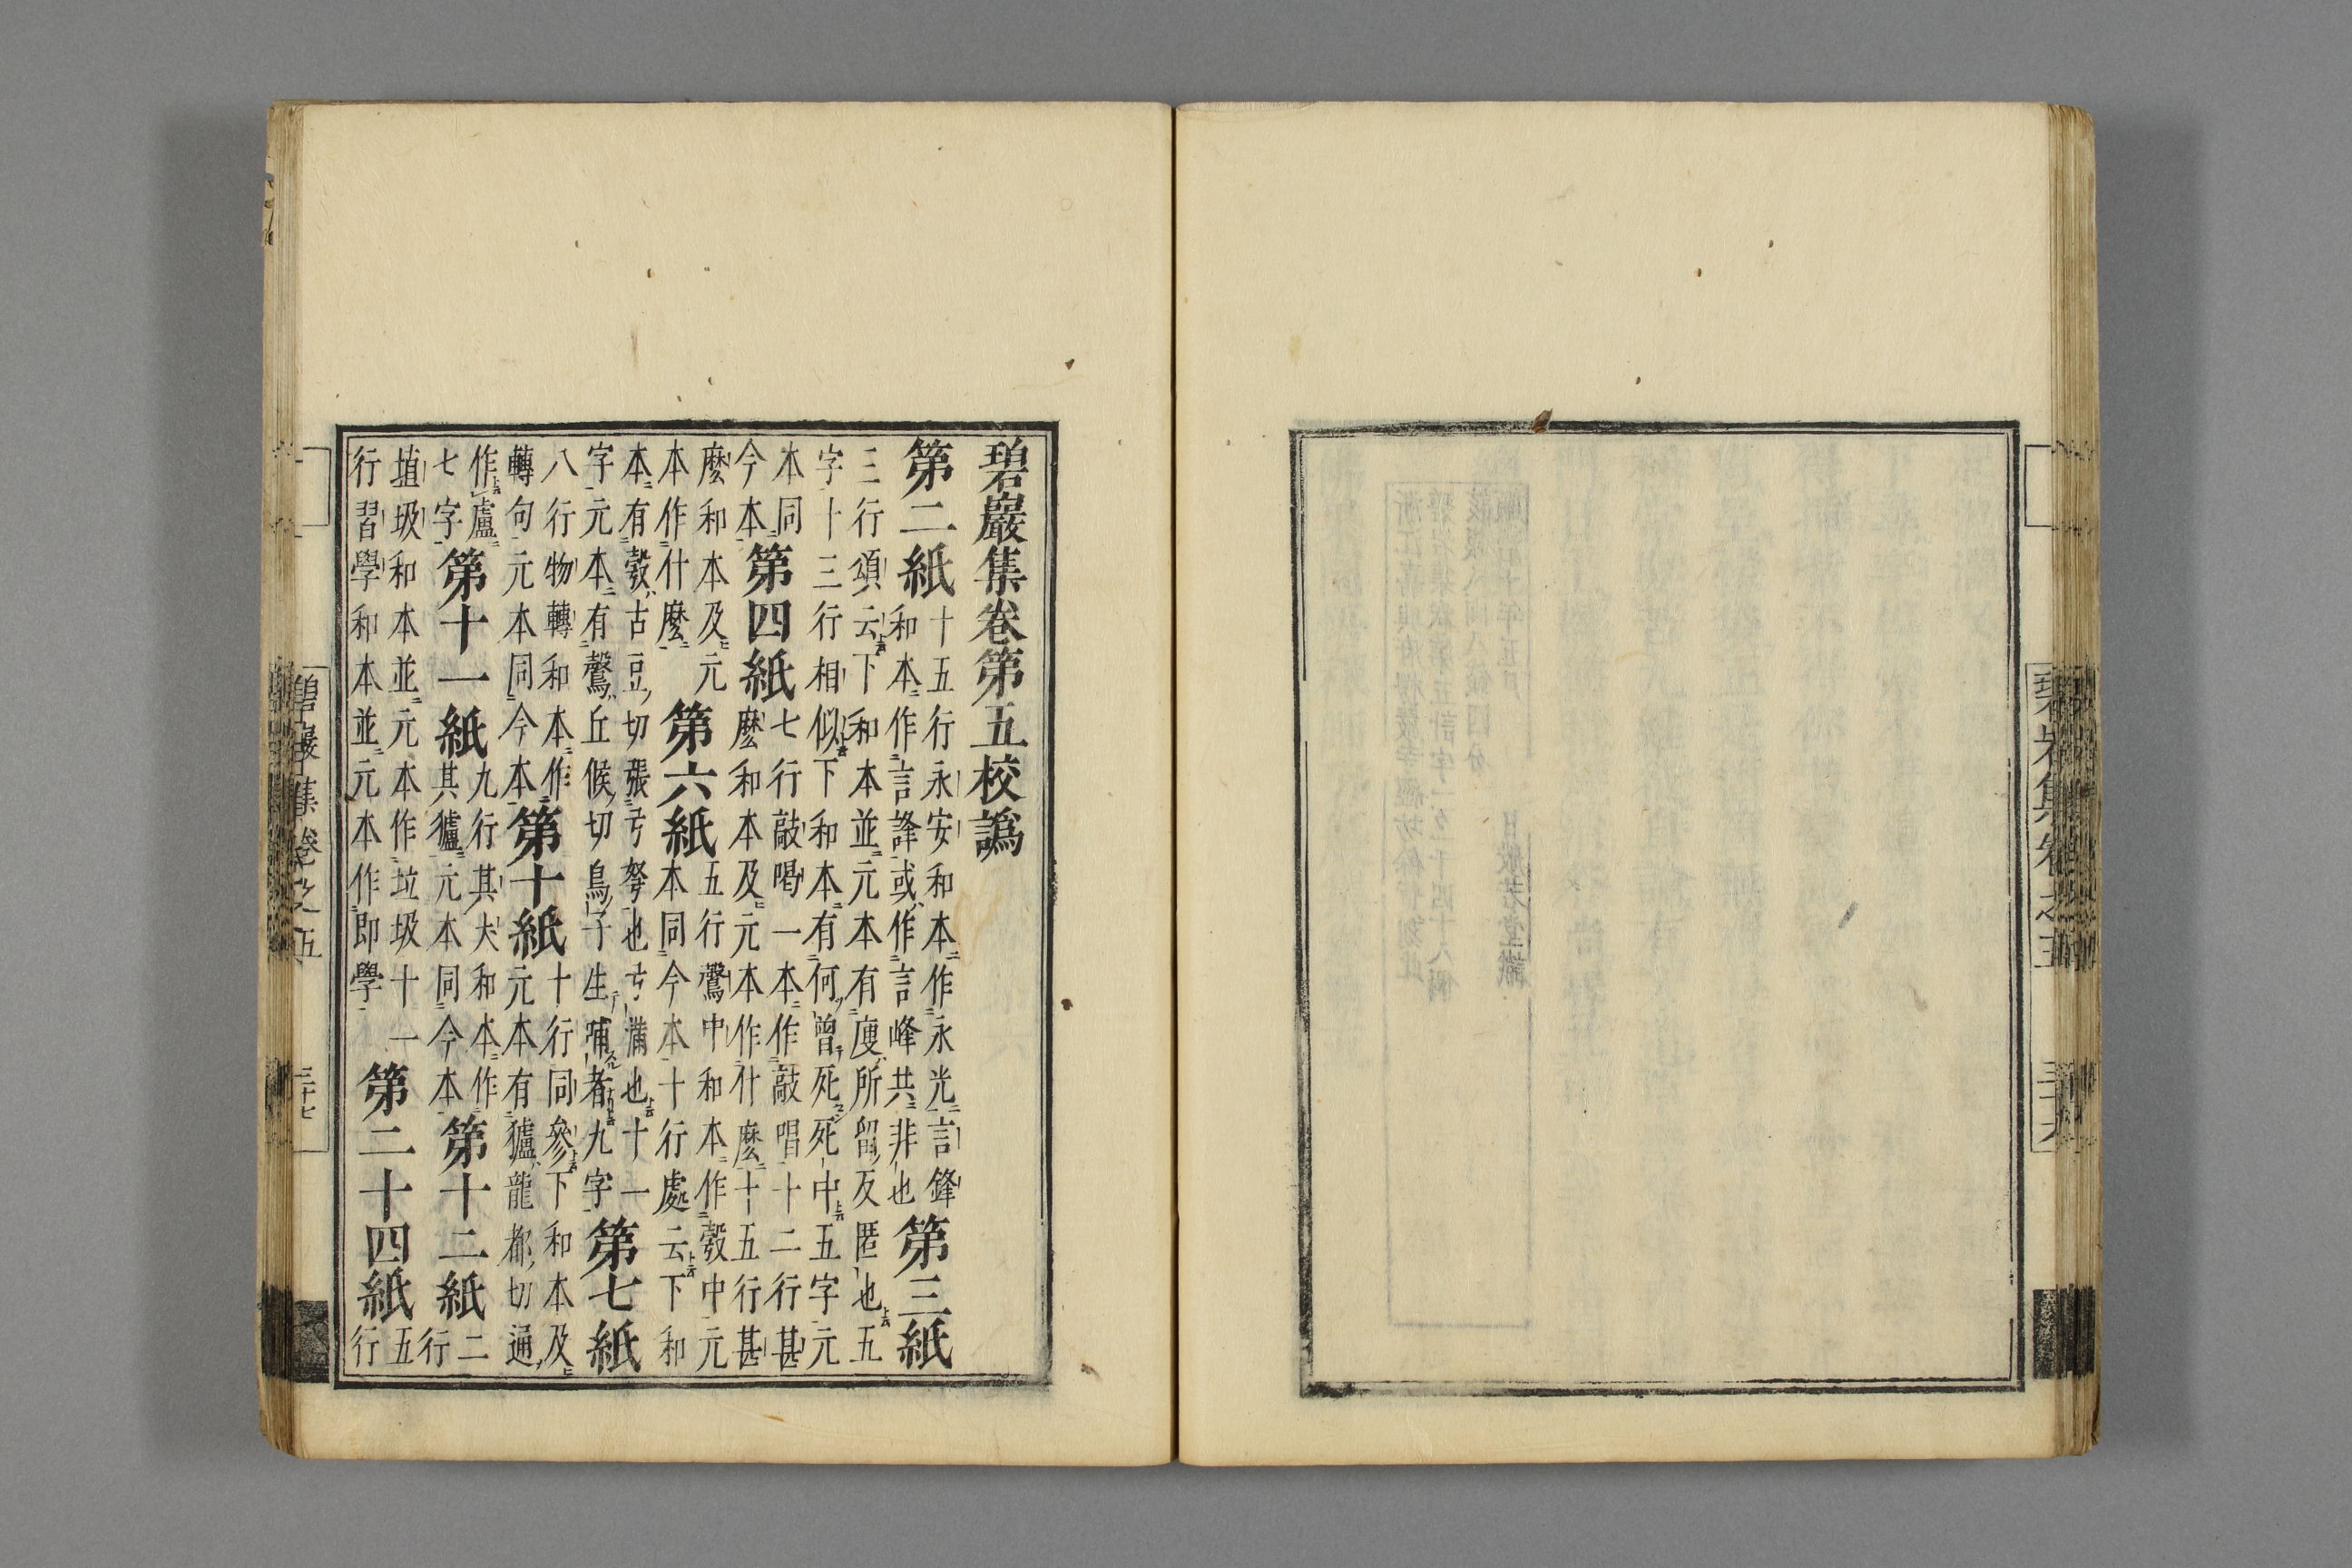 碧巖集卷第五校譌
第二紙
十五行永安和本作永光言鋒
和本作言鋒或作言峰共非也
第三紙
三行頌云下和本並元本有廋所留反匿也五
字十三行相似下和本有何曾死死中五字元
本同
今本
第四紙
七行敲喝一本作敲唱十二行甚
麼和本及元本作什麼十五行甚
麼和本及元
本作什麼
第六紙
五行鷇中和本作彀中元
本同今本十行處云下和
本有彀古豆切張弓弩也弓滿也十一
字元本有鷇丘候切鳥子生哺者九字
第七紙
八行物轉和本作
轉句元本同今本
第十紙
十行同參下和本及
元本有獹龍都切通
作盧
七字
第十一紙
九行其犬和本作
其獹元本同今本
第十二紙
二
行
埴圾和本並元本作垃圾十一
行習學和本並元本作即學
第二十四紙
五
行
碧巖集卷之五
三十七